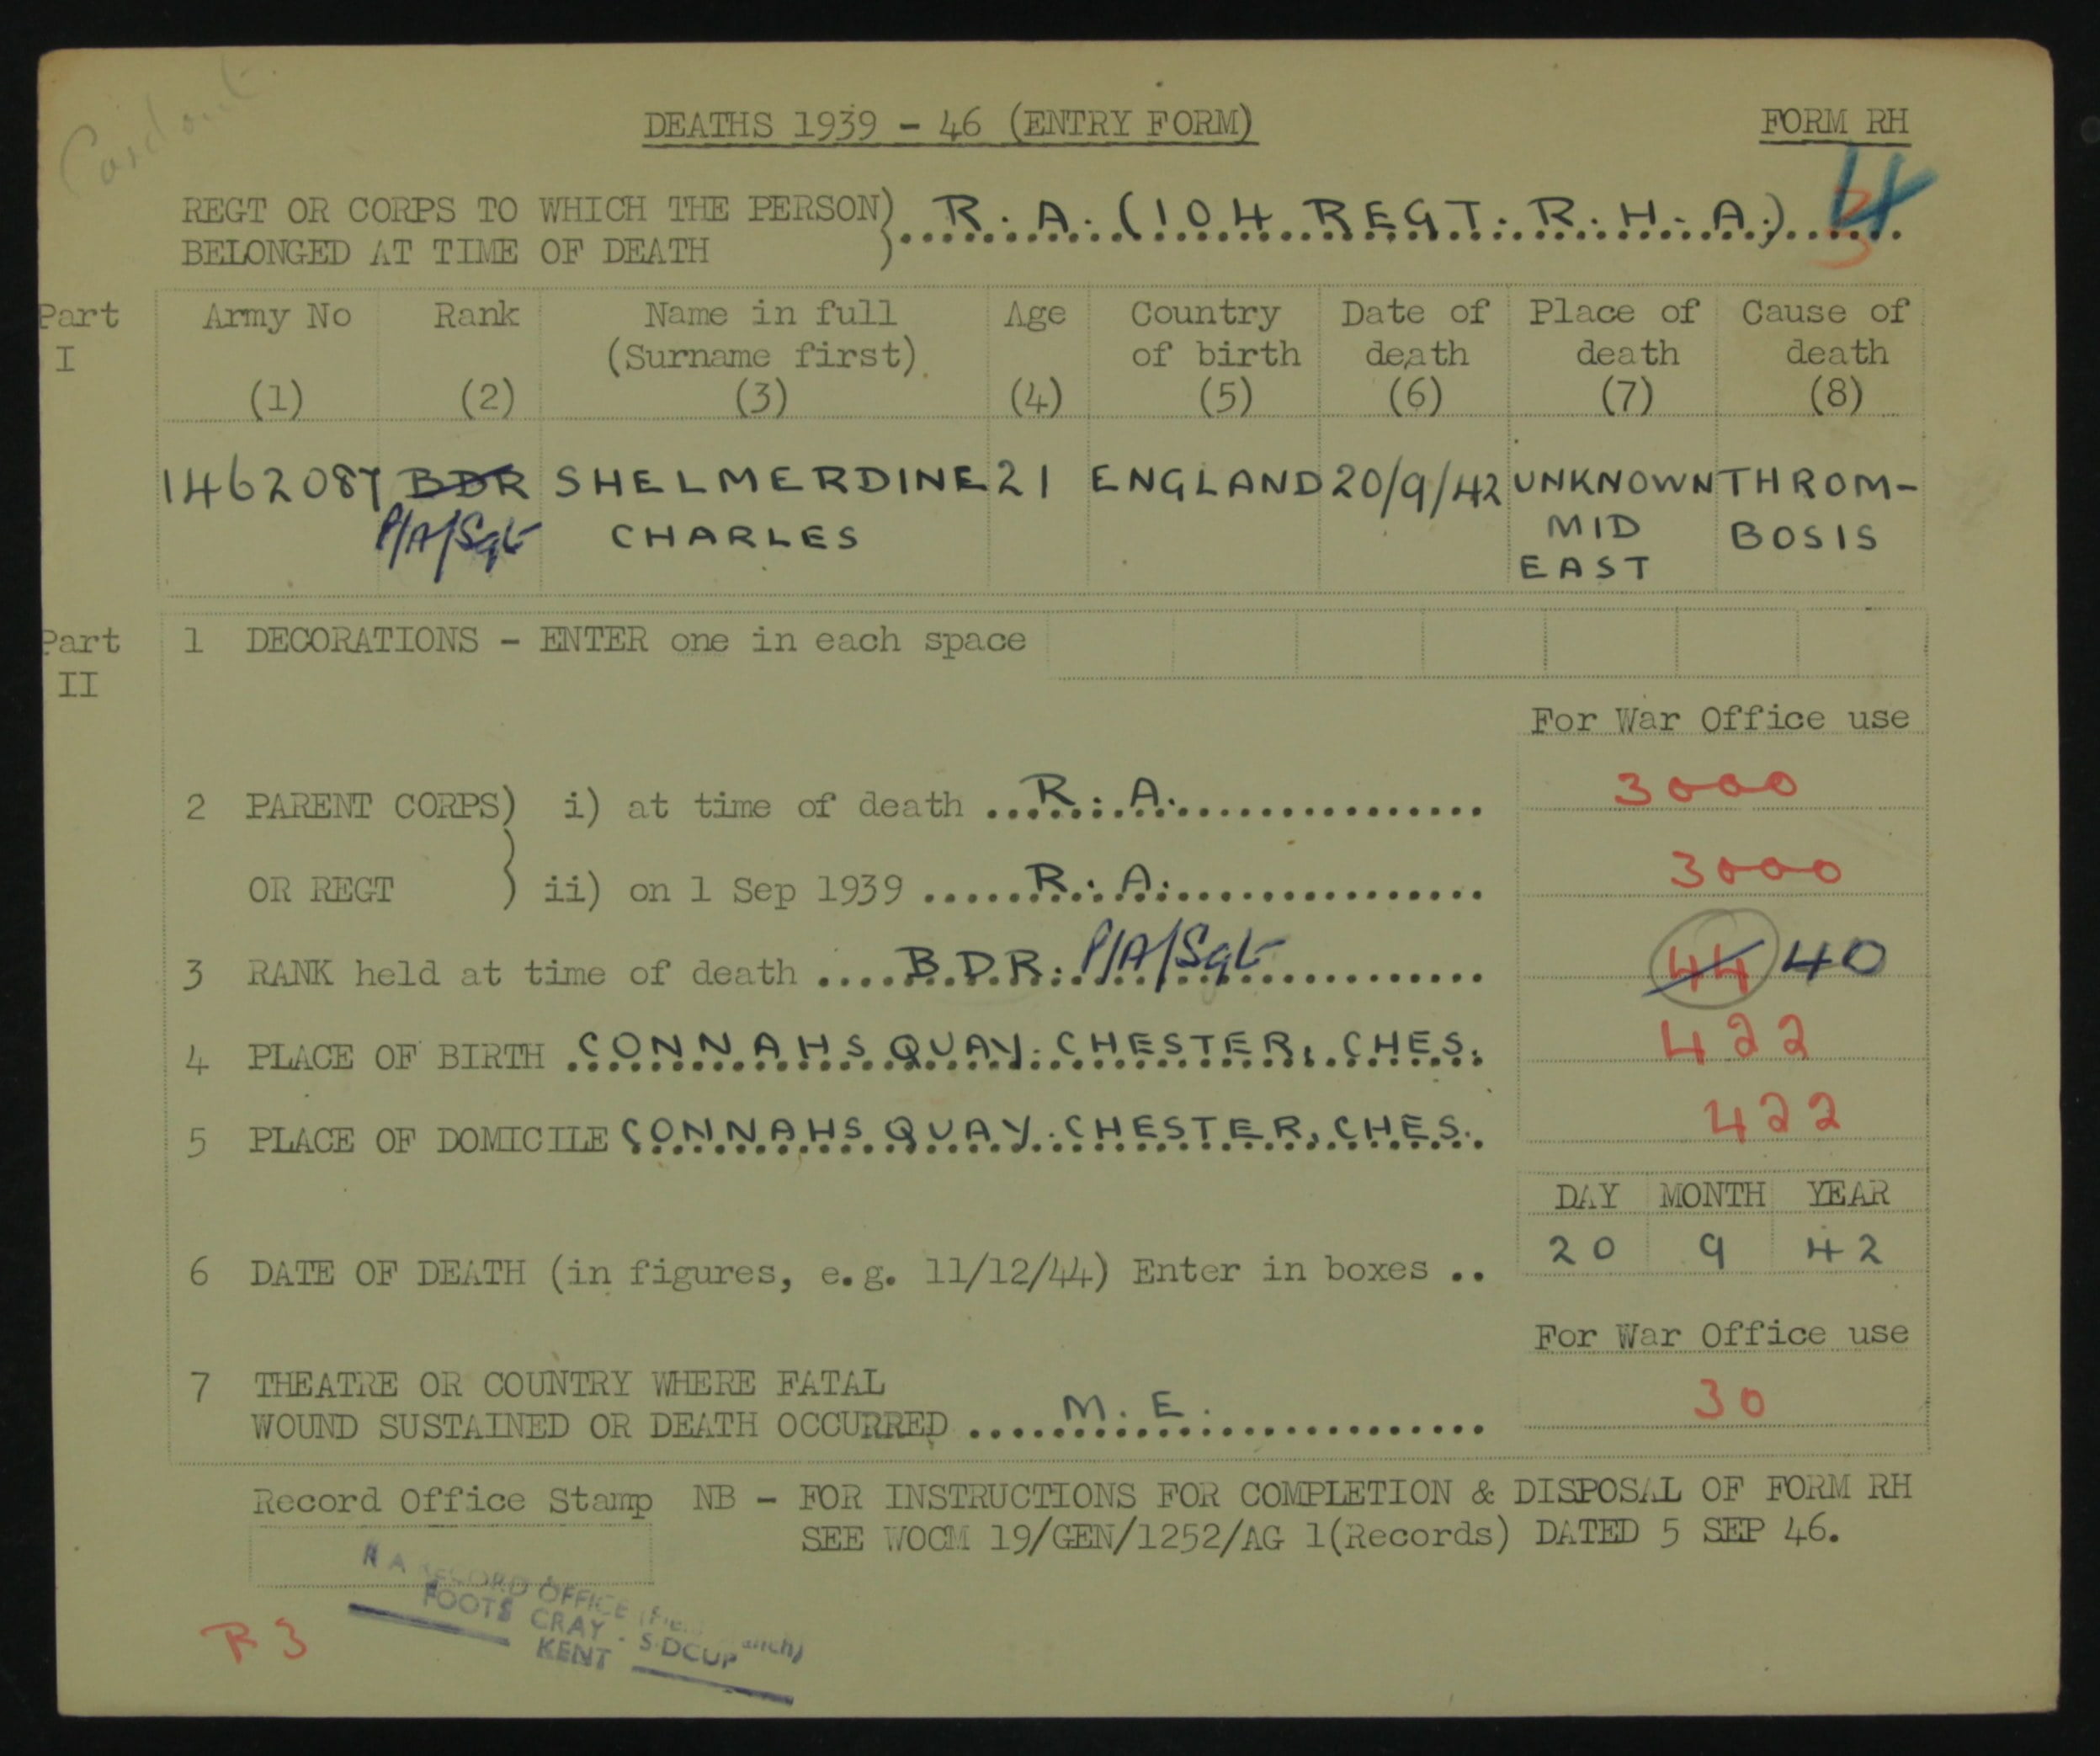 DEATHS 1939 - 46 (ENTRY FORM)
FORM RH
REGT OR CORPS TO WHICH THE PERSON) R. A. (104 REGT. R. H. A.) 4
BELONGED AT TIME OF DEATH
Part I
Army No Rank Name in full Age Country Date of Place of Cause of
(Surname first) of birth death death death
(1) (2) (3) (4) (5) (6) (7) (8)
1462087 BDR SHELMERDINE 21 ENGLAND 20/9/42 UNKNOWN THROM-
P/A/Sgt CHARLES MID BOSIS
EAST
Part II
1 DECORATIONS - ENTER one in each space
For War Office use
2 PARENT CORPS) i) at time of death R. A. 3000
OR REGT ) ii) on 1 Sep 1939 R. A. 3000
3 RANK held at time of death B.D.R. P/A/Sgt 44 40
4 PLACE OF BIRTH CONNAHS QUAY. CHESTER, CHES. 422
5 PLACE OF DOMICILE CONNAHS QUAY. CHESTER, CHES. 422
DAY MONTH YEAR
6 DATE OF DEATH (in figures, e.g. 11/12/44) Enter in boxes .. 20 9 42
For War Office use
7 THEATRE OR COUNTRY WHERE FATAL
WOUND SUSTAINED OR DEATH OCCURRED M. E. 30
Record Office Stamp NB - FOR INSTRUCTIONS FOR COMPLETION & DISPOSAL OF FORM RH
SEE WOCM 19/GEN/1252/AG 1(Records) DATED 5 SEP 46.
R A RECORD OFFICE
FOOTS CRAY - SIDCUP
KENT
R3